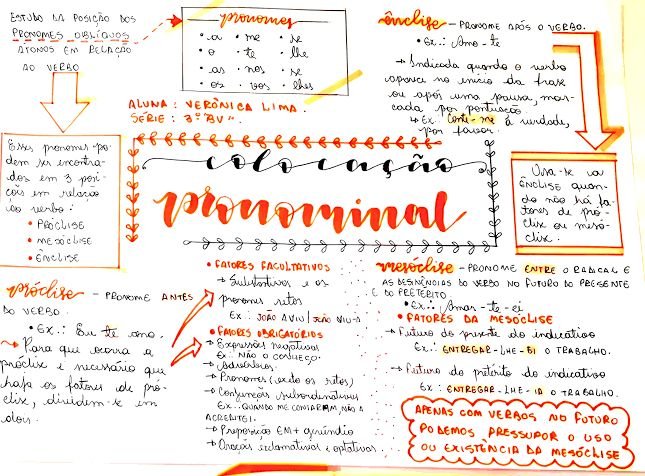 ESTUDO DA POSIÇÃO DOS
PRONOMES OBLÍQUOS
ÁTONOS EM RELAÇÃO
AO VERBO
pronomes
• a • me • se
• o • te • lhe
• as • nos • se
• os • vos • lhes
ênclise - PRONOME APÓS O VERBO.
• Ex.: Amo-te
→ Indicada quando o verbo
aparece no início da frase
ou após uma pausa mar-
cada por pontuação.
→ Ex: Conte-me a verdade,
por favor.
ALUNA: VERÔNICA LIMA.
SÉRIE: 3º "BV".
Esses pronomes po-
dem ser encontra-
dos em 3 posi-
ções em relação
ao verbo:
• PRÓCLISE
• MESÓCLISE
• ÊNCLISE
colocação
pronominal
Usa-se a
ÊNCLISE quan-
do não há fa-
tores de pró-
clise ou mesó-
clise.
próclise - PRONOME ANTES
DO VERBO.
• Ex.: Eu te amo.
→ Para que ocorra a
próclise é necessário que
haja os fatores de pró-
clise, dividem-se em
dois.
• FATORES FACULTATIVOS
→ Substantivos e os
pronomes retos
Ex: JOÃO A VIU / JOÃO VIU-A
• FATORES OBRIGATÓRIOS
→ Expressões negativas
Ex: NÃO O CONHEÇO.
→ Advérbios.
→ Pronomes (exceto os retos)
→ Conjunções subordinativas
Ex.: QUANDO ME CONTARAM, NÃO A
CREDITEI.
→ Preposição EM + gerúndio
→ Orações exclamativas e optativas.
mesóclise - PRONOME ENTRE O RADICAL E
AS DESINÊNCIAS DO VERBO NO FUTURO DO PRESENTE
E DO PRETÉRITO
• Ex: Amar-te-ei
• FATORES DA MESÓCLISE
→ Futuro do presente do indicativo
Ex.: ENTREGAR-LHE-EI O TRABALHO.
→ Futuro do pretérito do indicativo
Ex: ENTREGAR-LHE-IA O TRABALHO.
APENAS COM VERBOS NO FUTURO
PODEMOS PRESSUPOR O USO
OU EXISTÊNCIA DA MESÓCLISE